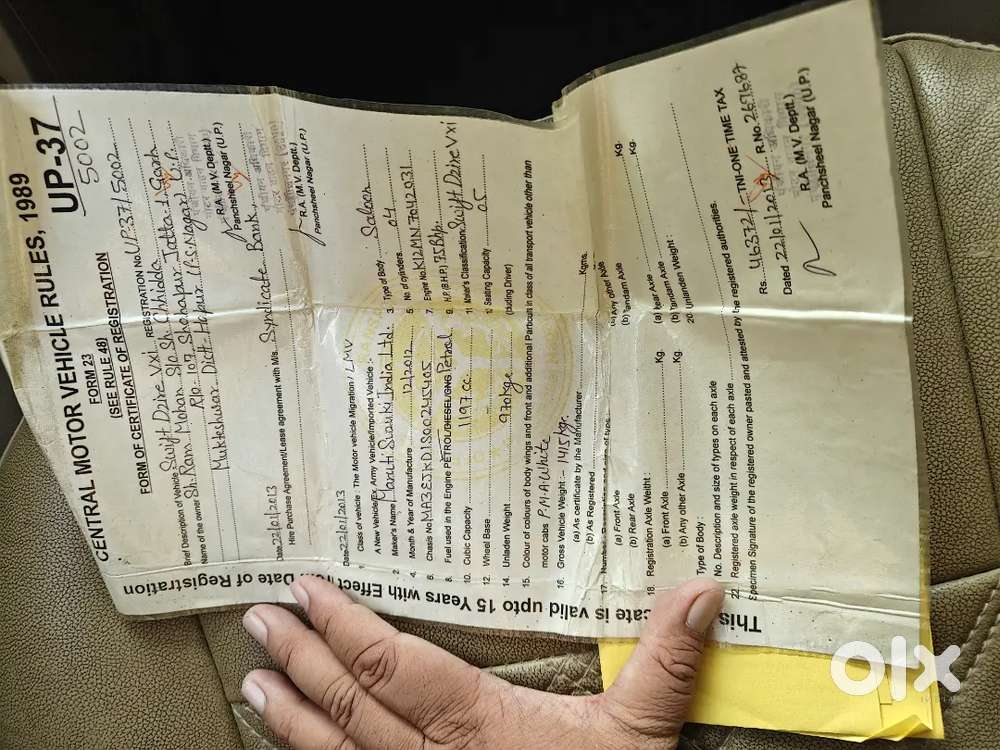 CENTRAL MOTOR VEHICLE RULES, 1989
FORM 23
(SEE RULE 48)
FORM OF CERTIFICATE OF REGISTRATION
UP-37
5002
REGISTRATION No. UP.37/5002
Brief Description of Vehicle Swift Dzire VXI
Name of the owner Sh. Ram Mohan S/o Sh. Chhidda
R/o: 107 Shahapur Jatta, Garh
Mukteshwar Distt-Hapur U.P.
R.A. (M.V. Deptt.)
Panchsheel Nagar (U.P.)
Date 22/01/2013
Hire Purchase Agreement/Lease agreement with M/s. Syndicate Bank
R.A. (M.V. Deptt.)
Panchsheel Nagar (U.P.)
Date 22/01/2013
1. Class of vehicle : The Motor vehicle Migration / LMV
A New Vehicle/Ex. Army Vehicle/Imported Vehicle :-
2. Maker's Name Maruti Suzuki India Ltd. 3. Type of Body Saloon
4. Month & Year of Manufacture 12/2012 5. No of cylinders. 04
6. Chassis No MA3EJKD1S00245405 7. Engine No K12MN7042031
8. Fuel used in the Engine PETROL/DIESEL/CNG Petrol 9. H.P. (B.H.P.) 75 Bhp.
10. Cubic Capacity 1197.cc. 11 Maker's Classification Swift Dzire Vxi
12. Wheel Base 1 Seating Capacity 05
14. Unladen Weight 970kgs (cluding Driver)
15. Colour of colours of body wings and front and additional Particult in class of all transport vehicle other than
motor cabs P.M.A. White
16. Gross Vehicle Weight :- 1415 kgr.
(a) As certificate by the Manufacturer Kgms.
(b) As Registered
17.
(a) Front Axle (a) Any other Axle Kg.
(b) Rear Axle (b) Tandam Axle Kg.
18. Registration Axle Weight :
(a) Front Axle Kg. (a) Rear Axle
(b) Any other Axle Kg. (b) Tandam Axle
Type of Body : 20 Unlanden Weight :
No. Description and size of types on each axle
22. Registered axle weight in respect of each axle
Specimen Signature of the registered owner pasted and attested by the registered authorities.
Rs. U6372/- TNI-ONE TIME TAX
Dated 22/01/2013 R.No. 267687
R.A. (M.V. Deptt.)
Panchsheel Nagar (U.P.)
This
cate is valid upto 15 Years with Effect
Date of Registration
olx